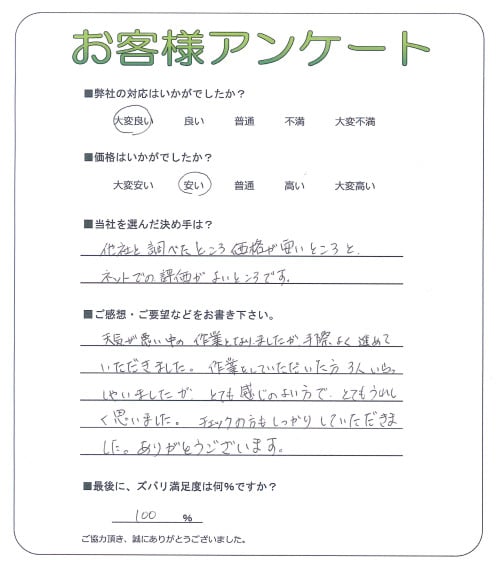 お客様アンケート
■弊社の対応はいかがでしたか？
大変良い 良い 普通 不満 大変不満
■価格はいかがでしたか？
大変安い 安い 普通 高い 大変高い
■当社を選んだ決め手は？
他社と調べたところ価格が安いところと、
ネットでの評価がよいところです。
■ご感想・ご要望などをお書き下さい。
天気が悪い中の作業となりましたが手際よく進めて
いただきました。作業をしていただいた方3人いらっ
しゃいましたが、とても感じのよい方で、とてもうれし
く思いました。チェックの方もしっかりしていただきま
した。ありがとうございます。
■最後に、ズバリ満足度は何%ですか？
100 %
ご協力頂き、誠にありがとうございました。